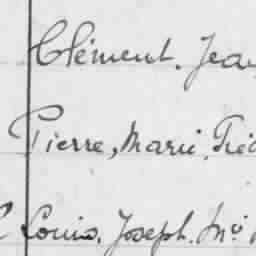 Clément. Jean
Pierre, Marie,
Louis. Joseph. Mie